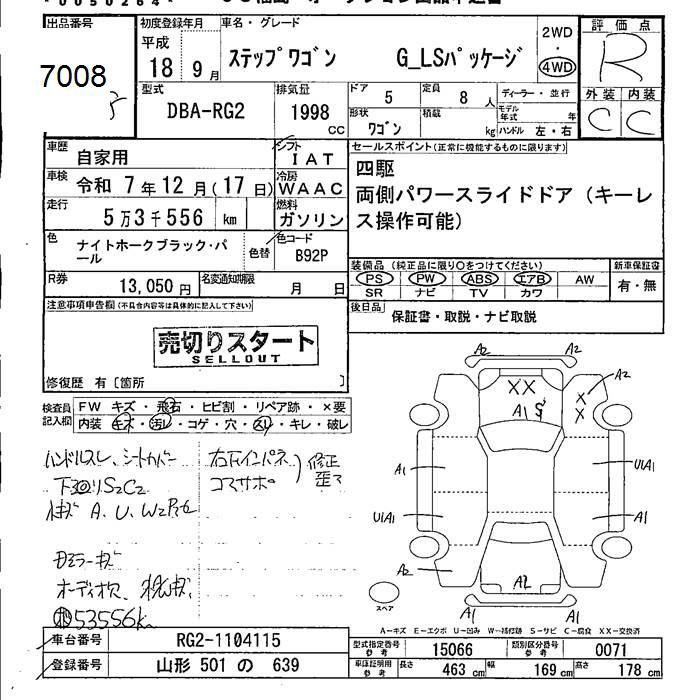 出品番号 初度登録年月 車名・グレード 2WD 評価点
7008 平成 18 9月 ステップワゴン G_LSパッケージ 4WD R
型式 DBA-RG2 排気量 1998 CC ドア 5 定員 8 人 ディーラー・並行 外装 内装
形状 ワゴン 積載 kg モデル年式 年 ハンドル 左・右 C C
車歴 自家用 シフト IAT セールスポイント(正常に機能するものに限ります)
車検 令和 7年12月(17日) 冷房 WAAC 四駆
走行 5万3千556 km 燃料 ガソリン 両側パワースライドドア(キーレ
ス操作可能)
色 ナイトホークブラック・パール 色替 色コード B92P
R券 13,050円 名変通知期限 月 日
装備品(純正品に限り〇をつけてください) 新車保証書
PS PW ABS エアB AW 有・無
SR ナビ TV カワ
注意事項申告欄(不具合内容等は具体的に記入して下さい)
後日品 保証書・取説・ナビ取説
売切りスタート
SELLOUT
修復歴 有〔箇所 〕
検査員記入欄 FW キズ・飛石・ヒビ割・リペア跡・×要
内装 キズ・汚レ・コゲ・穴・スレ・キレ・破レ
ハンドルスレ、シートカバー 右下インパネ 修正
下回りS2C2 コマサポ 歪マ
A.U.W2
ドアミラーキズ
53556k
A2 A2
XX A2
A1 S X X
A1 U1A1
U1A1 A1
A2 A2
A1 A1
スペア
A-キズ E-エクボ U-凹み W-補修跡 S-サビ C-腐食 XX-交換済
車台番号 RG2-1104115 型式指定番号 参考 15066 類別区分番号 参考 0071
登録番号 山形 501 の 639 車庫証明用 参考 長さ 463 cm 幅 169 cm 高さ 178 cm